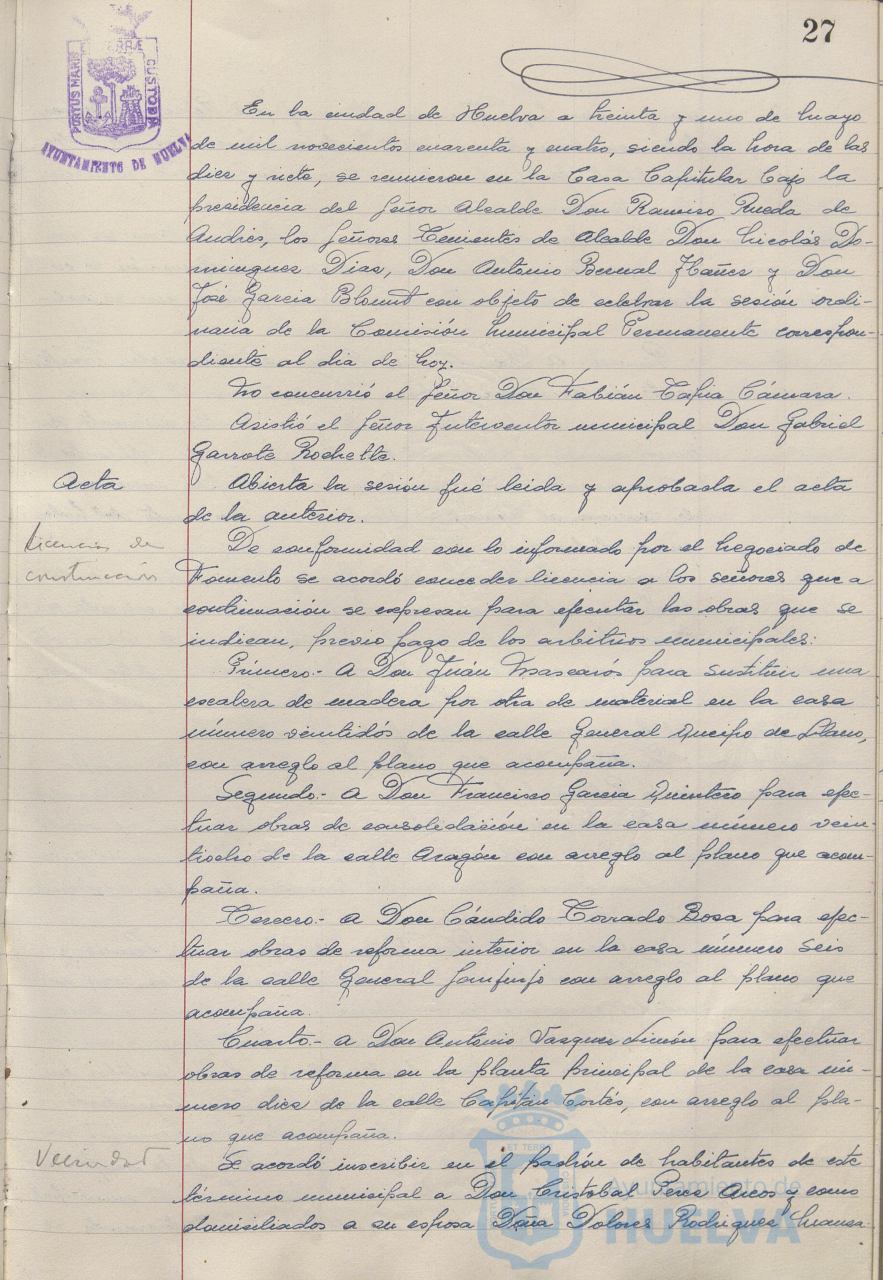 27
PORTUS MARIS
ET TERRÆ
CUSTODIA
AYUNTAMIENTO DE HUELVA
En la ciudad de Huelva a treinta y uno de Mayo
de mil novecientos cuarenta y cuatro, siendo la hora de las
diez y siete, se reunieron en la Casa Capitular bajo la
presidencia del Señor Alcalde Don Ramiro Rueda de
Andrés, los Señores Tenientes de Alcalde Don Nicolás Do-
minguez Diaz, Don Antonio Bernal Ibañez y Don
José Garcia Blount con objeto de celebrar la sesión ordi-
naria de la Comisión Municipal Permanente correspon-
diente al dia de hoy.
No concurrió el Señor Don Fabián Tapia Cámara.
Asistió el Señor Interventor municipal Don Gabriel
Garrote Rochette.
Acta
Abierta la sesión fué leida y aprobada el acta
de la anterior.
Licencias de
construcción
De conformidad con lo informado por el Negociado de
Fomento se acordó conceder licencia a los señores que a
continuación se expresan para ejecutar las obras que se
indican, previo pago de los arbitrios municipales:
Primero.- A Don Juán Mascarós para sustituir una
escalera de madera por otra de material en la casa
número ventidós de la calle General Queipo de Llano,
con arreglo al plano que acompaña.
Segundo.- A Don Francisco Garcia Quintero para efec-
tuar obras de consolidación en la casa número vein-
tiocho de la calle Aragón con arreglo al plano que acom-
paña.
Tercero.- A Don Cándido Torrado Bosa para efec-
tuar obras de reforma interior en la casa número seis
de la calle General Sanjurjo con arreglo al plano que
acompaña.
Cuarto.- A Don Antonio Vazquez Limón para efectuar
obras de reforma en la planta principal de la casa nú-
mero diez de la calle Capitán Cortés, con arreglo al pla-
no que acompaña.
Vecindad
Se acordó inscribir en el padrón de habitantes de este
término municipal a Don Cristobal Perez Arcos y como
domiciliados a su esposa Doña Dolores Rodriguez
Ayuntamiento de
HUELVA